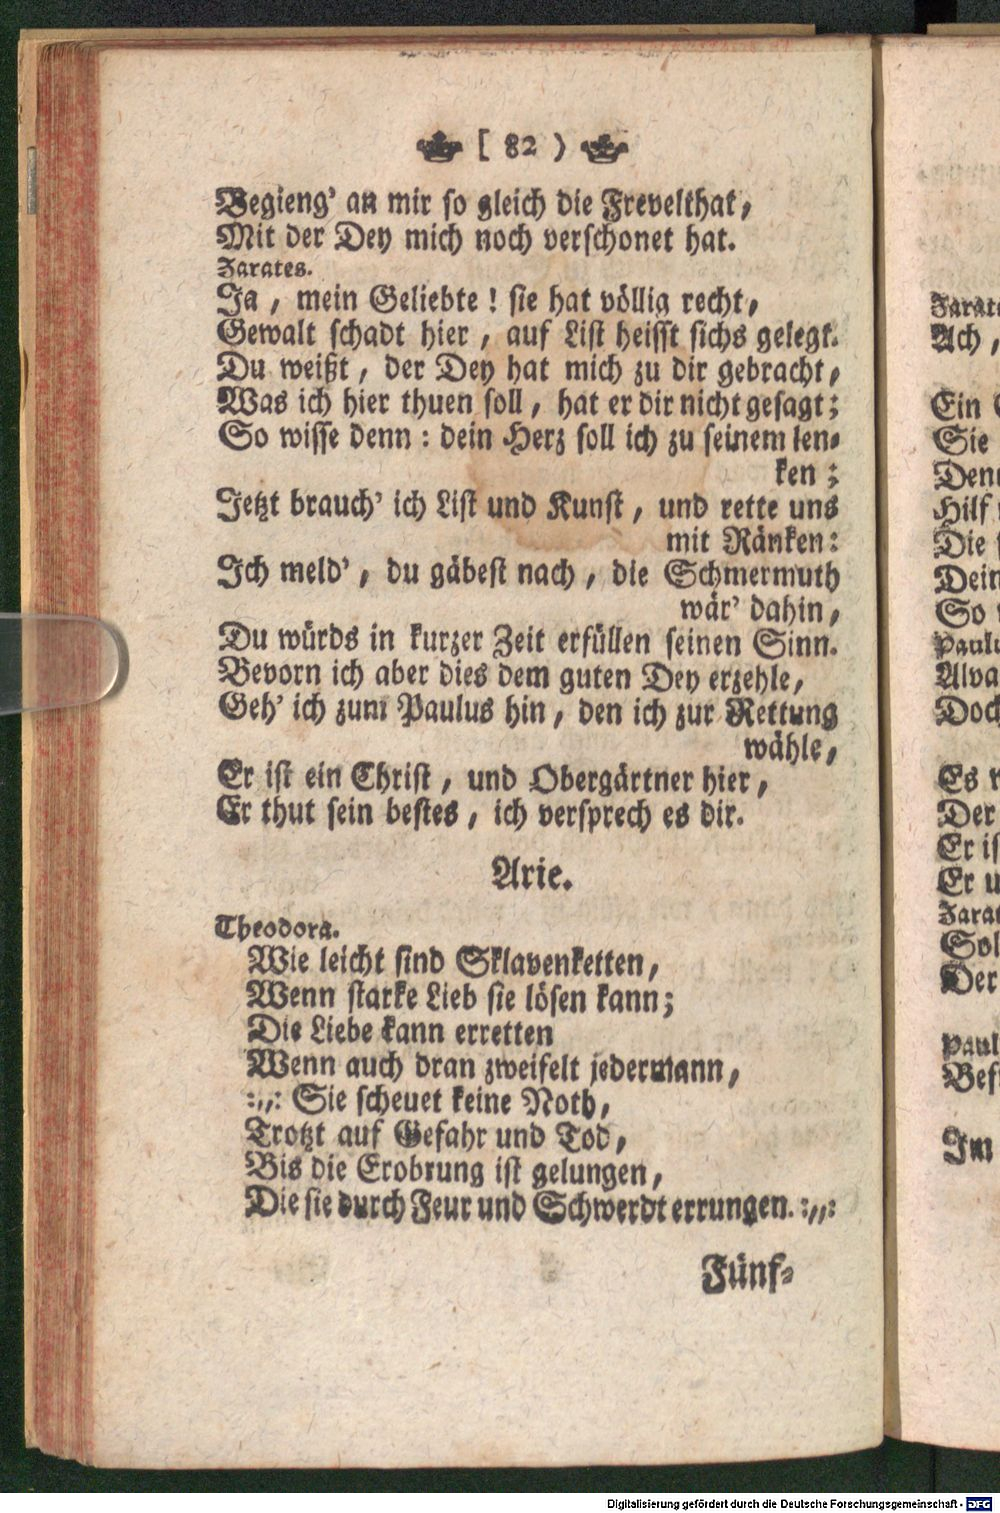 [ 82 )
Begieng' an mir so gleich die Frevelthat,
Mit der Dey mich noch verschonet hat.
Zarates.
Ja, mein Geliebte! sie hat völlig recht,
Gewalt schadt hier, auf List heisst sichs gelegt.
Du weißt, der Dey hat mich zu dir gebracht,
Was ich hier thuen soll, hat er dir nicht gesagt;
So wisse denn: dein Herz soll ich zu seinem len-
ken;
Jetzt brauch' ich List und Kunst, und rette uns
mit Ränken:
Ich meld', du gäbest nach, die Schmermuth
wär' dahin,
Du würds in kurzer Zeit erfüllen seinen Sinn.
Bevorn ich aber dies dem guten Dey erzehle,
Geh' ich zum Paulus hin, den ich zur Rettung
wähle,
Er ist ein Christ, und Obergärtner hier,
Er thut sein bestes, ich versprech es dir.
Arie.
Theodora.
Wie leicht sind Sklavenketten,
Wenn starke Lieb sie lösen kann;
Die Liebe kann erretten
Wenn auch dran zweifelt jedermann,
:,,: Sie scheuet keine Noth,
Trotzt auf Gefahr und Tod,
Bis die Erobrung ist gelungen,
Die sie durch Feur und Schwerdt errungen. :,,:
Fünf-
Ach,
Ein
Sie
Hilf
Die
Dein
So
Alva
Doch
Es
Der
Er
Er
Der
Im
Digitalisierung gefördert durch die Deutsche Forschungsgemeinschaft - DFG